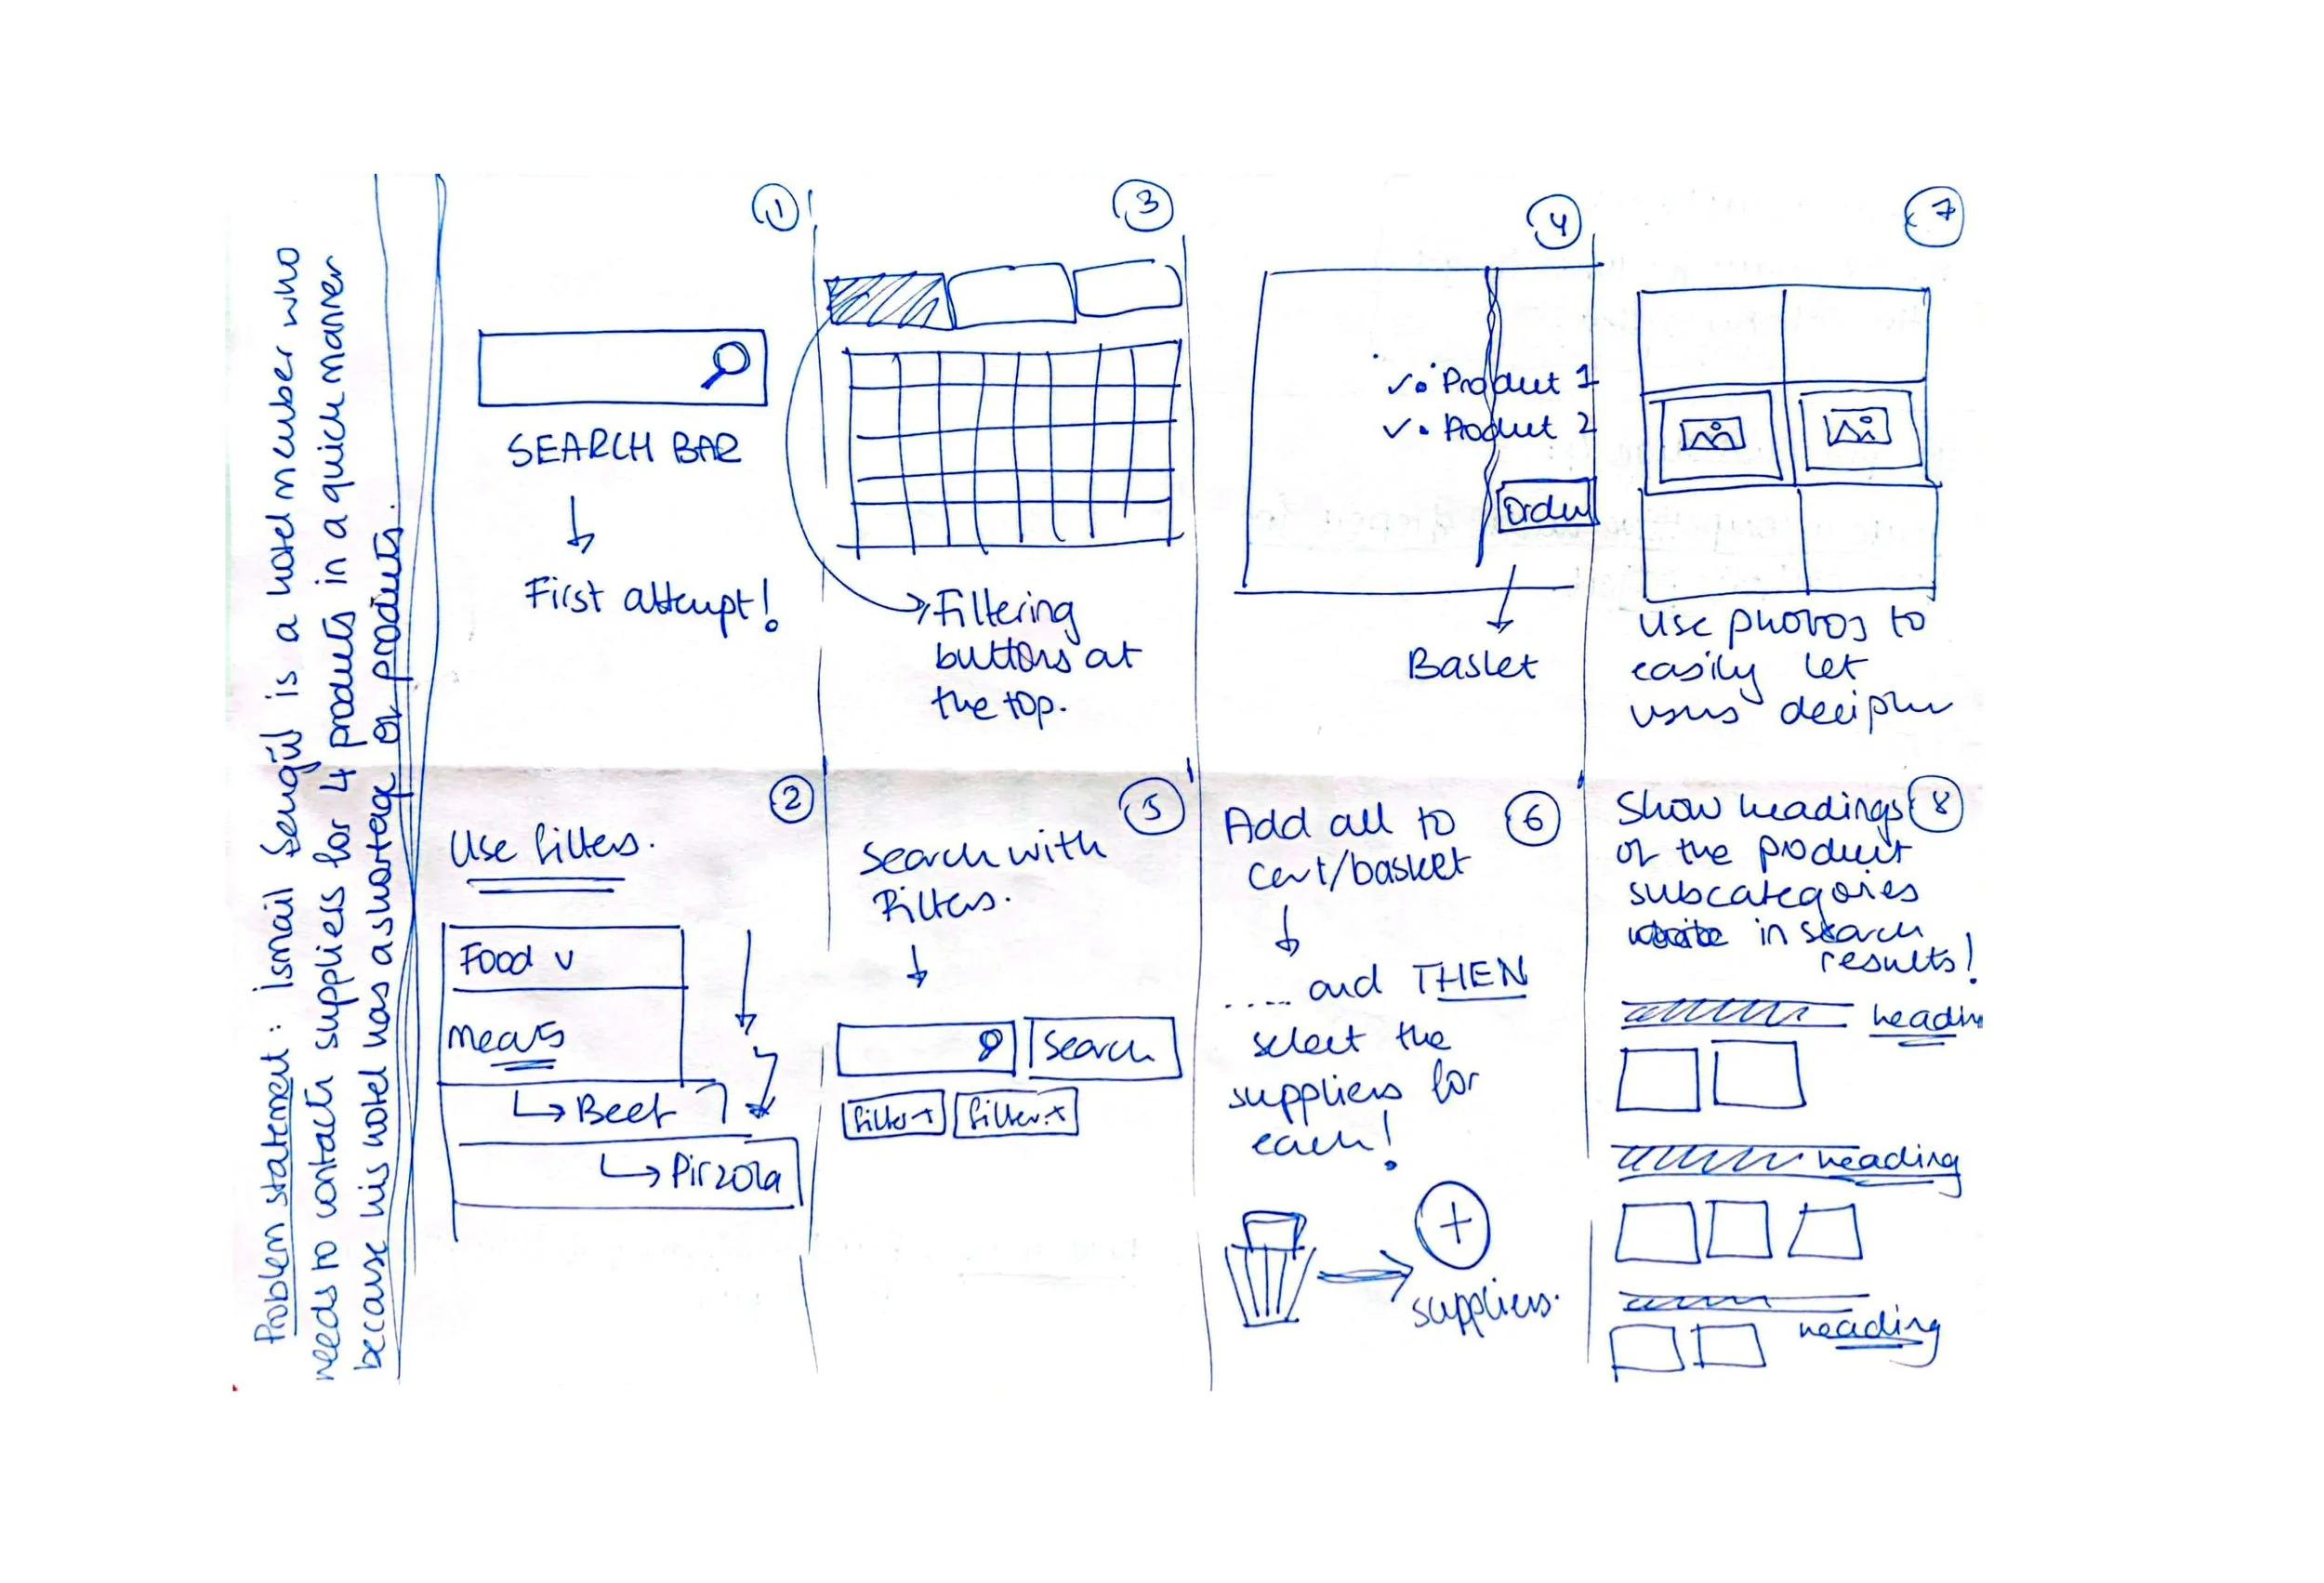 Problem statement: İsmail Şengül is a hotel member who
needs to contact suppliers for 4 products in a quick manner
because his hotel has a shortage of products.
1
SEARCH BAR
First attempt!
3
Filtering
buttons at
the top.
4
Product 1
Product 2
Order
Basket
7
Use photos to
easily let
users decipher
2
Use filters.
Food v
Meats
Beef
Pirzola
5
Search with
Filters.
Search
filter x
filter x
6
Add all to
cart/basket
..... and THEN
select the
suppliers for
each!
+
suppliers.
8
Show headings
of the product
subcategories
in search
results!
headin
heading
heading